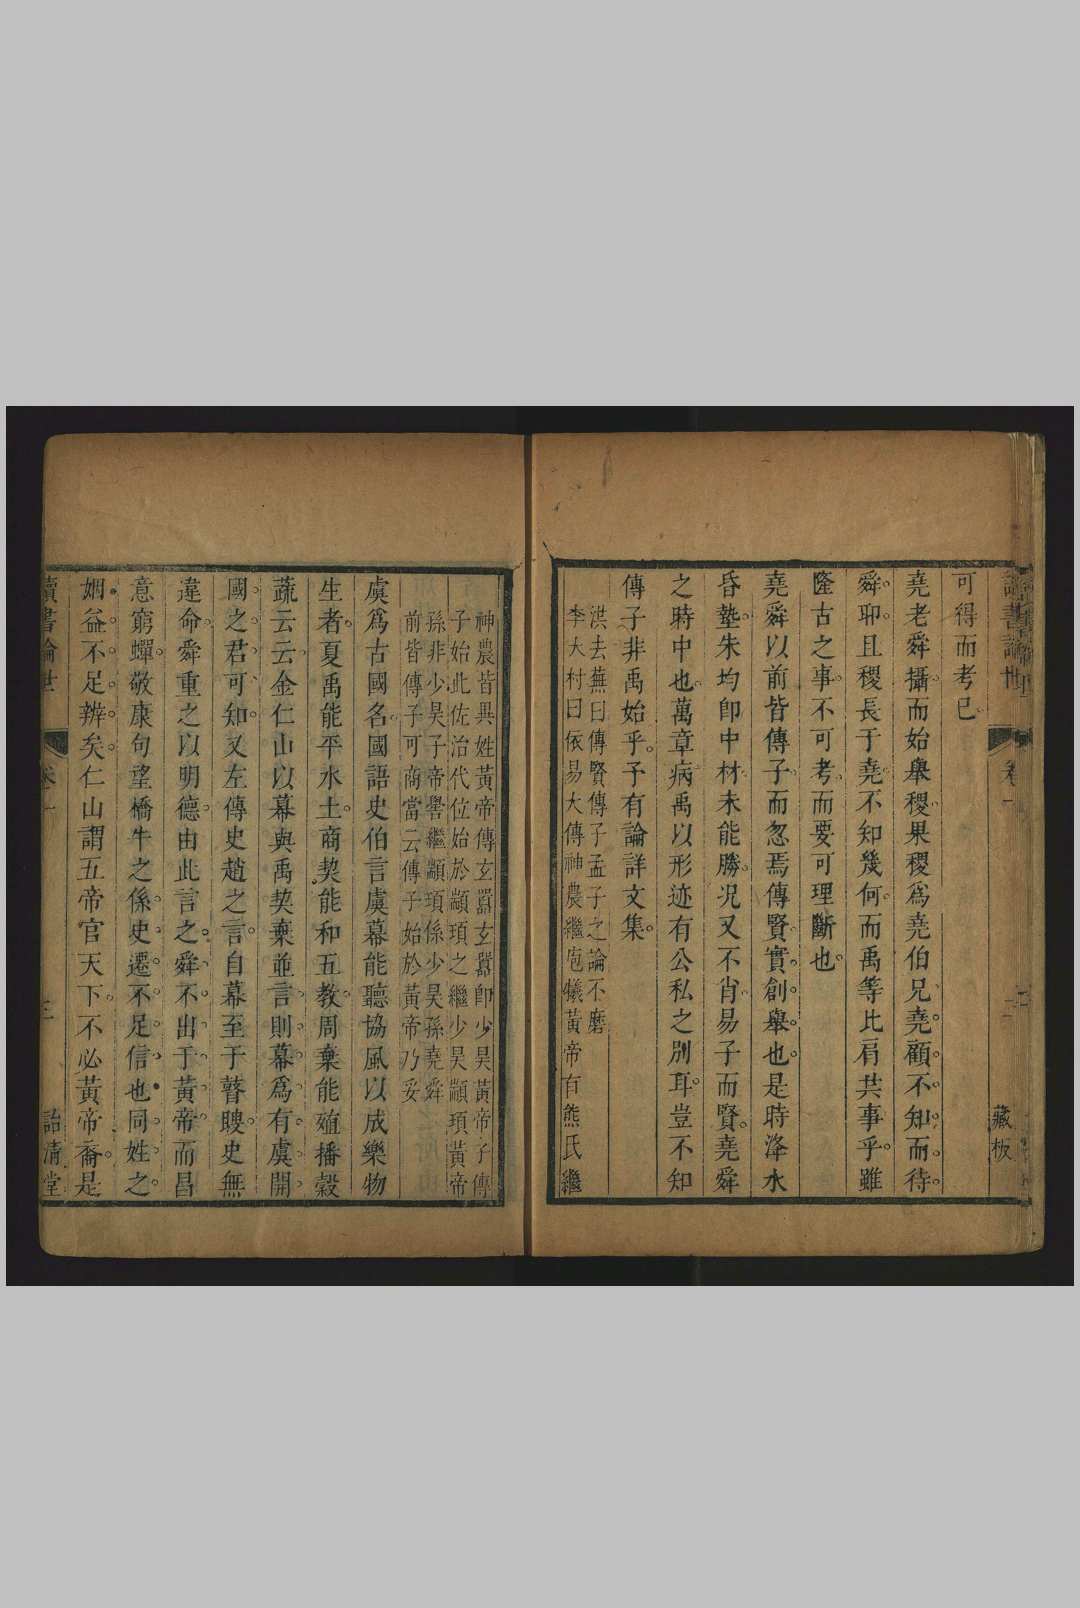 讀書論世
卷一
二
藏板
可得而考已
堯老舜攝而始舉稷果稷爲堯伯兄堯顧不知而待
舜耶且稷長于堯不知幾何而禹等比肩共事乎雖
隆古之事不可考而要可理斷也
堯舜以前皆傳子而忽焉傳賢實創舉也是時洚水
昏墊朱均卽中材未能勝况又不肖易子而賢堯舜
之時中也萬章病禹以形迹有公私之別耳豈不知
傳子非禹始乎予有論詳文集
洪去蕪曰傳賢傳子孟子之論不磨
李大村曰依易大傳神農繼庖犧黃帝有熊氏繼
神農皆異姓黃帝傳玄囂玄囂卽少昊黃帝子傳
子始此佐治代位始於顓頊之繼少昊顓頊黃帝
孫非少昊子帝嚳繼顓頊係少昊孫堯舜
前皆傳子可商當云傳子始於黃帝乃妥
虞爲古國名國語史伯言虞幕能聽協風以成樂物
生者夏禹能平水土商契能和五教周棄能殖播穀
蔬云云金仁山以幕與禹契棄並言則幕爲有虞開
國之君可知又左傳史趙之言自幕至于瞽瞍史無
違命舜重之以明德由此言之舜不出于黃帝而昌
意窮蟬敬康句望橋牛之係史遷不足信也同姓之
婣益不足辨矣仁山謂五帝官天下不必黃帝裔是
讀書論世
卷一
三
詒清堂